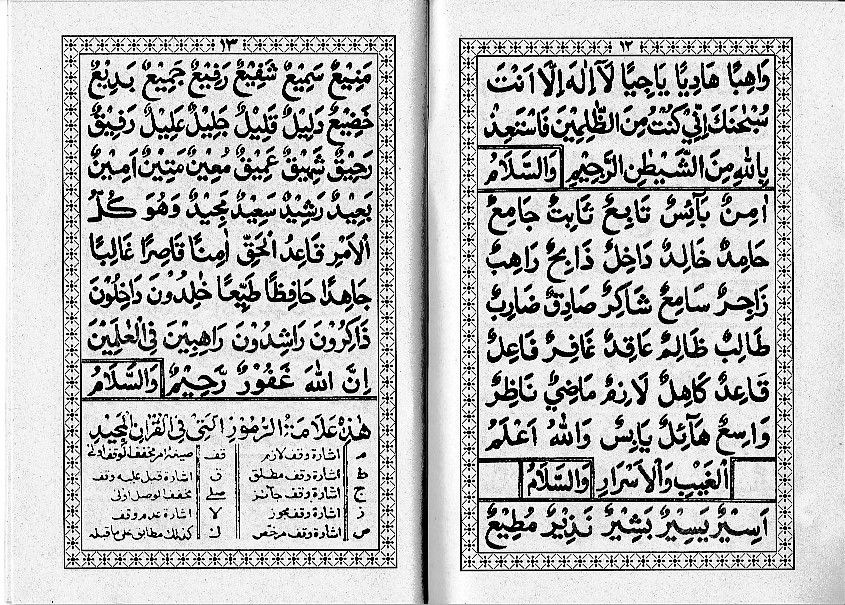 ١٢
وَاهِبًا هَادِيًا يَاحِيًا لَآ اِلٰهَ اِلَّا اَنْتَ
سُبْحٰنَكَ اِنِّيْ كُنْتُ مِنَ الظّٰلِمِيْنَ فَاسْتَعِذْ
بِاللهِ مِنَ الشَّيْطٰنِ الرَّجِيْمِ وَالسَّلَامُ
اٰمِنٌ بَآئِسٌ تَابِعٌ ثَابِتٌ جَامِعٌ
حَامِدٌ خَالِدٌ دَاخِلٌ ذَابِحٌ رَاهِبٌ
زَاجِرٌ سَامِعٌ شَاكِرٌ صَادِقٌ ضَارِبٌ
طَالِبٌ ظَالِمٌ عَاقِدٌ غَافِرٌ فَاعِلٌ
قَاعِدٌ كَاهِلٌ لَازِمٌ مَاضِيٌ نَاظِرٌ
وَاسِعٌ هَآئِلٌ يَابِسٌ وَاللهُ اَعْلَمُ
الْغَيْبِ وَالْاَسْرَارِ وَالسَّلَامُ
اَسِيْرٌ يَسِيْرٌ بَشِيْرٌ نَذِيْرٌ مُطِيْعٌ
١٣
مَنِيْعٌ سَمِيْعٌ شَفِيْعٌ رَفِيْعٌ جَمِيْعٌ بَدِيْعٌ
خَضِيْعٌ دَلِيْلٌ قَلِيْلٌ جَلِيْلٌ عَلِيْلٌ رَفِيْقٌ
رَحِيْقٌ شَهِيْقٌ عَمِيْقٌ مُعِيْنٌ مَتِيْنٌ اَمِيْنٌ
بَعِيْدٌ رَشِيْدٌ سَعِيْدٌ مَجِيْدٌ وَهُوَ كُلُّ
الْاَمْرِ قَاعِدُ الْحَقِّ اٰمِنًا قَاصِرًا غَالِبًا
جَاهِدًا حَافِظًا طَيِّعًا خٰلِدُوْنَ دَاخِلُوْنَ
ذَاكِرُوْنَ رَاشِدُوْنَ رَاهِبِيْنَ فِى الْعٰلَمِيْنَ
اِنَّ اللهَ غَفُوْرٌ رَّحِيْمٌ وَالسَّلَامُ
هٰذِهٖ عَلَامَةُ الرُّمُوْزِ الَّتِيْ فِى الْقُرْاٰنِ الْمَجِيْدِ
م اشارة وقف لازم قف
ط اشارة وقف مطلق ق اشارة قيل عليه وقف
ج اشارة وقف جائز صلى مخفف الوصل اولى
ز اشارة وقف مجوز لا اشارة عدم وقف
ص اشارة وقف مرخص ك كذلك مطابق على ما قبله